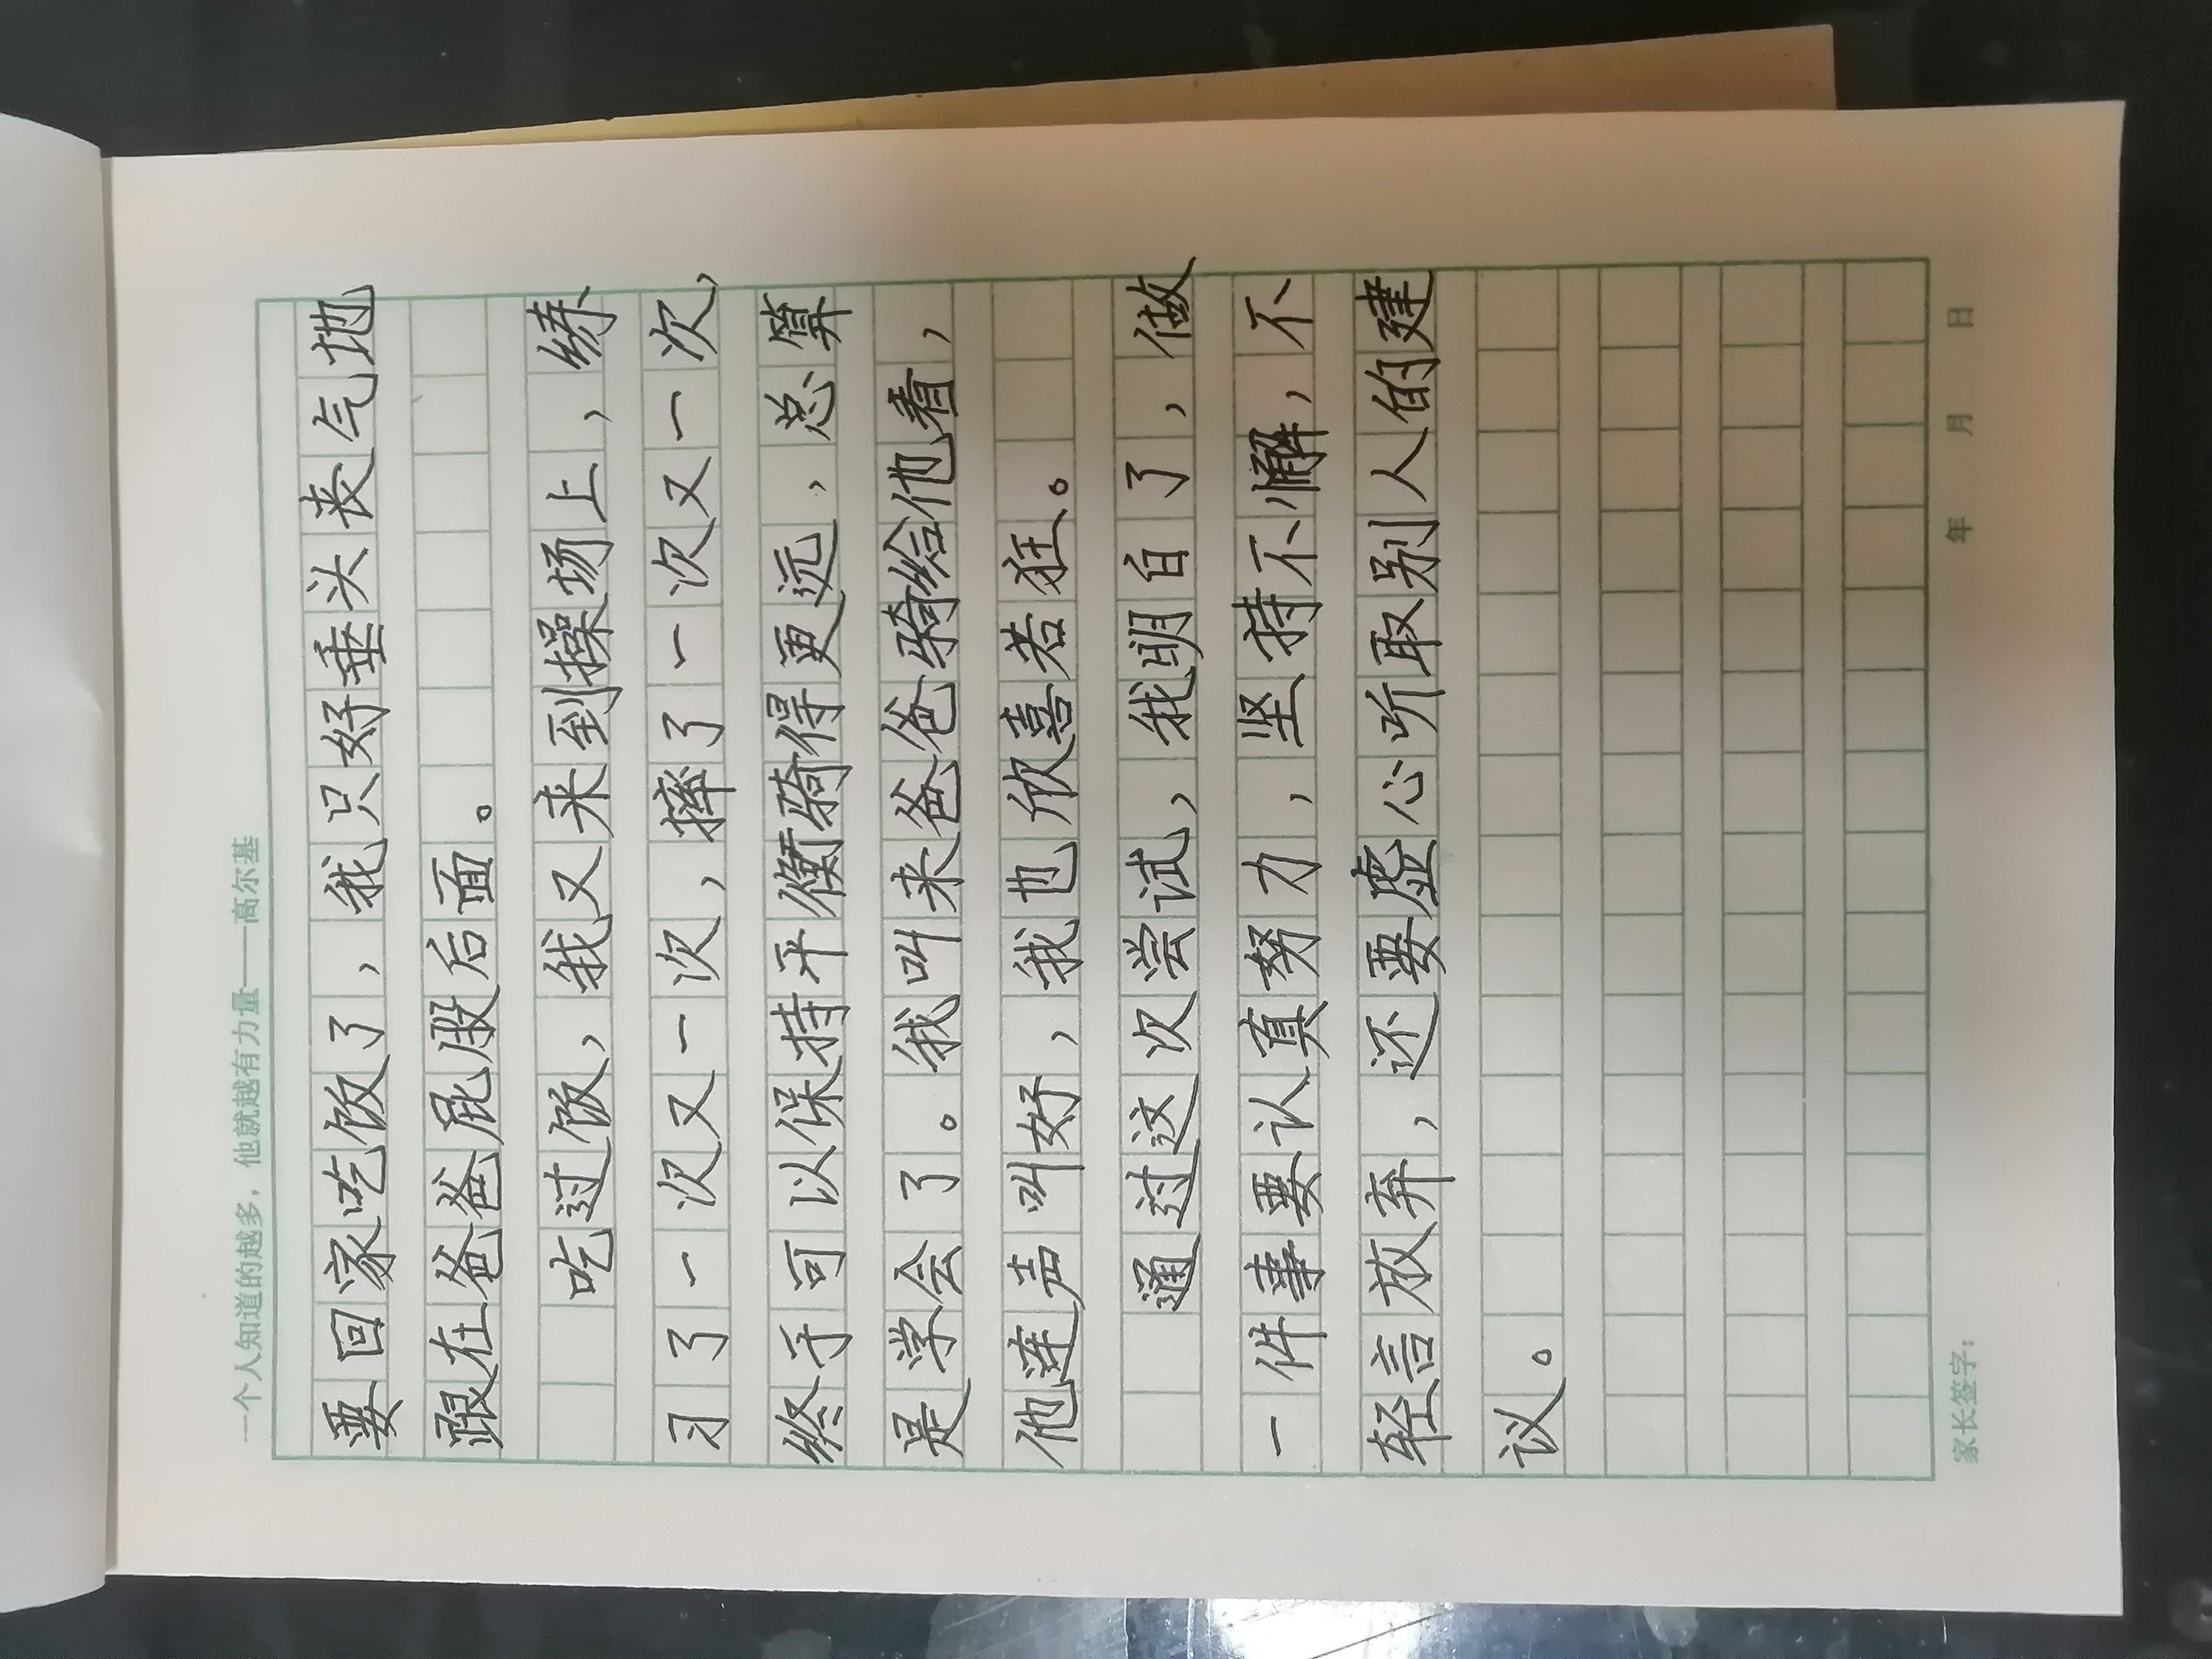 一个人知道的越多，他就越有力量——高尔基
要回家吃饭了，我只好垂头丧气地
跟在爸爸屁股后面。
吃过饭，我又来到操场上，练
习了一次又一次，摔了一次又一次，
终于可以保持平衡骑得更远，总算
是学会了。我叫来爸爸骑给他看，
他连声叫好，我也欣喜若狂。
通过这次尝试，我明白了，做
一件事要认真努力，坚持不懈，不
轻言放弃，还要虚心听取别人的建
议。
家长签字： 年 月 日